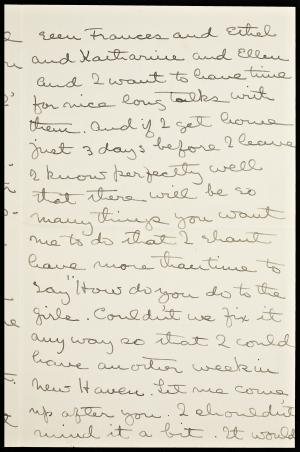 seen Frances and Ethel
and Katharine and Ellen
and I want to have time
for nice long talks with
them. And if I get home
just 3 days before I leave
I know perfectly well
that there will be so
many things you want
me to do that I shant
have more than time to
say "How do you do to the
girls. Couldn't we fix it
any way so that I could
have another week in
New Haven. Let me come
up after you. I shouldn't
mind it a bit. It would